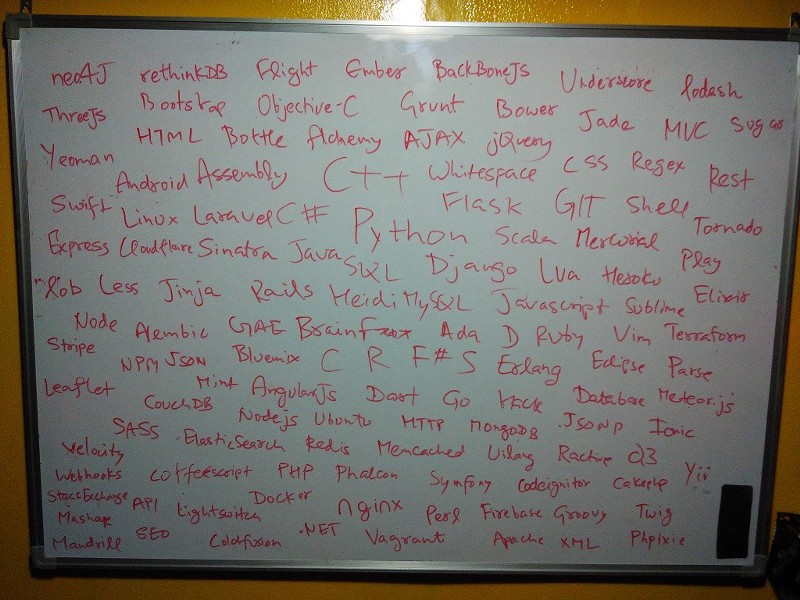 neo4J rethinkDB Flight Ember BackBoneJs Underscore lodash
ThreeJs Bootstrap Objective-C Grunt Bower Jade MVC Sugar
HTML Bottle Alchemy AJAX jQuery
Yeoman Android Assembly C++ Whitespace CSS Regex Rest
Swift Linux Laravel C# Python Flask GIT Shell
Express Cloudflare Sinatra Java Scala Mercurial Tornado
SQL Django Lua Heroku Play
Less Jinja Rails HeidiMySQL Javascript Sublime Elixir
Node Alembic GAE BrainFxxx Ada D Ruby Vim Terraform
Stripe NPM JSON Bluemix C R F# S Erlang Eclipse Parse
Leaflet Mint AngularJs Dart Go Database Meteor.js
CouchDB Nodejs Ubuntu HTTP MongoDB JSONP Ionic
SASS ElasticSearch Redis Memcached Ractive d3
Velocity
Webhooks Coffeescript PHP Phalcon Symfony Codeignitor Cakephp Yii
StackExchange API Lightswitch Docker nginx Perl Firebase Groovy Twig
Mashape
Mandrill SEO Coldfusion .NET Vagrant Apache XML Phpixie